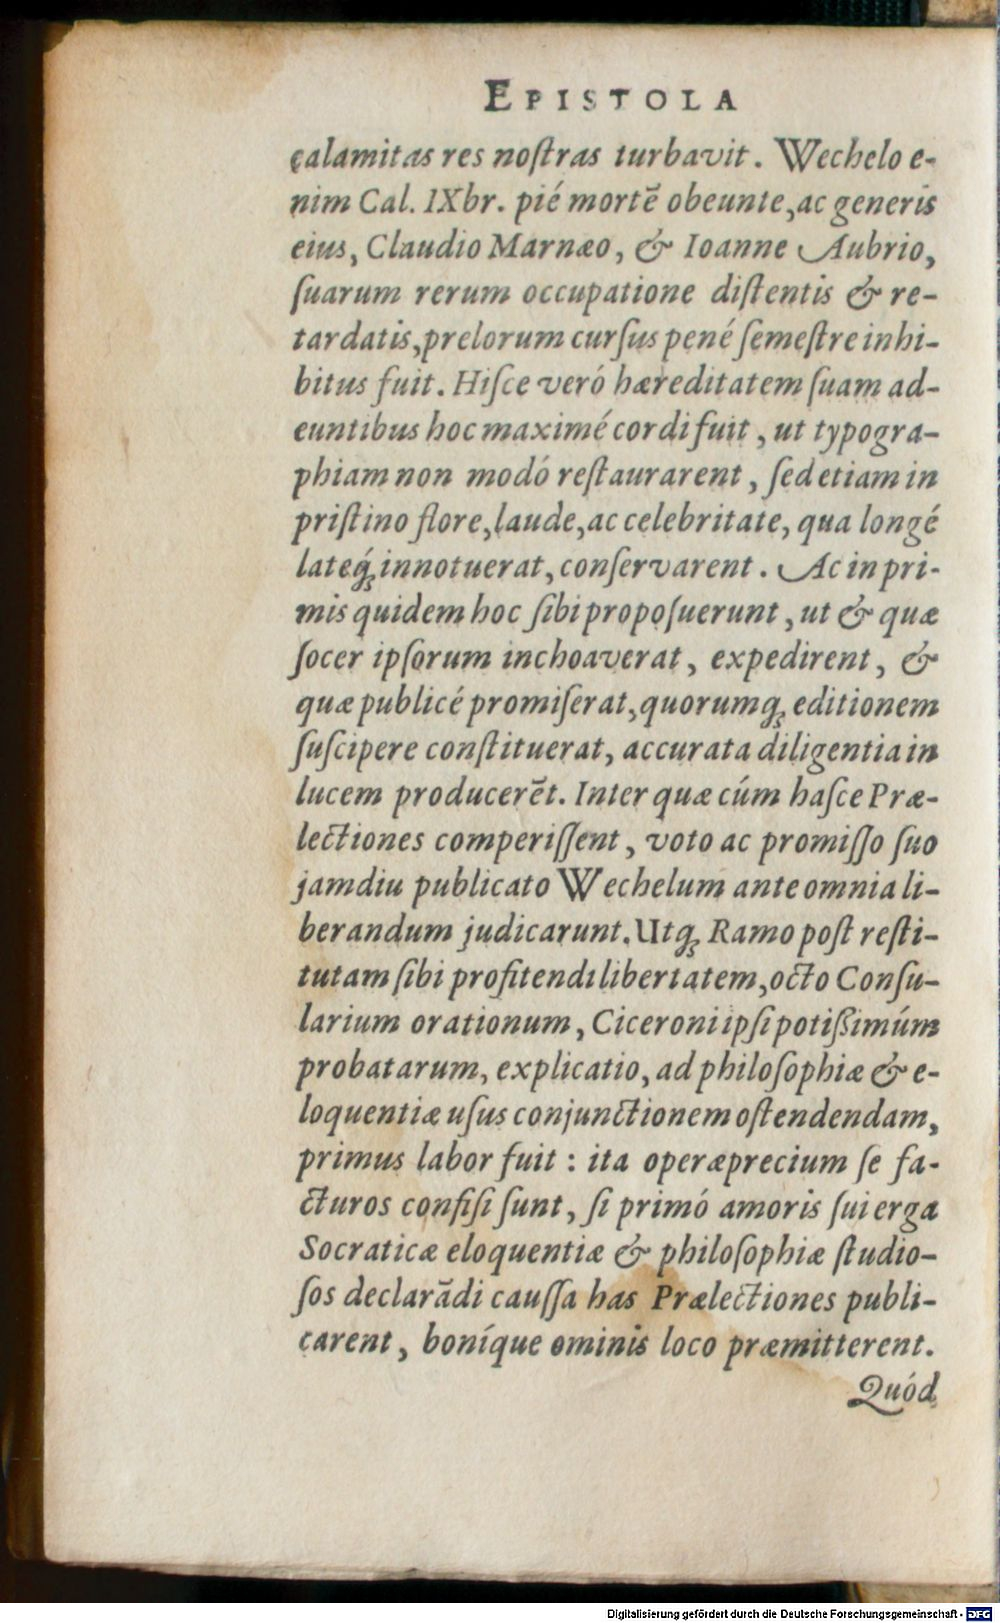 EPISTOLA
calamitas res noſtras turbavit. Wechelo e-
nim Cal. IXbr. pié mortē obeunte, ac generis
eius, Claudio Marnæo, & Ioanne Aubrio,
ſuarum rerum occupatione diſtentis & re-
tardatis, prelorum curſus pené ſemeſtre inhi-
bitus fuit. Hiſce veró hæreditatem ſuam ad-
euntibus hoc maximé cordi fuit, ut typogra-
phiam non modó reſtaurarent, ſed etiam in
priſtino flore, laude, ac celebritate, qua longé
lateq́; innotuerat, conſervarent. Ac in pri-
mis quidem hoc ſibi propoſuerunt, ut & quæ
ſocer ipſorum inchoaverat, expedirent, &
quæ publicé promiſerat, quorumq; editionem
ſuſcipere conſtituerat, accurata diligentia in
lucem producerēt. Inter quæ cúm haſce Præ-
lectiones comperiſſent, voto ac promiſſo ſuo
jamdiu publicato Wechelum ante omnia li-
berandum judicarunt. Utq; Ramo poſt reſti-
tutam ſibi profitendi libertatem, octo Conſu-
larium orationum, Ciceroni ipſi potißimúm
probatarum, explicatio, ad philoſophiæ & e-
loquentiæ uſus conjunctionem oſtendendam,
primus labor fuit: ita operæprecium ſe fa-
cturos confiſi ſunt, ſi primó amoris ſui erga
Socraticæ eloquentiæ & philoſophiæ ſtudio-
ſos declarādi cauſſa has Prælectiones publi-
carent, boníque ominis loco præmitterent.
Quód
Digitalisierung gefördert durch die Deutsche Forschungsgemeinschaft - DFG